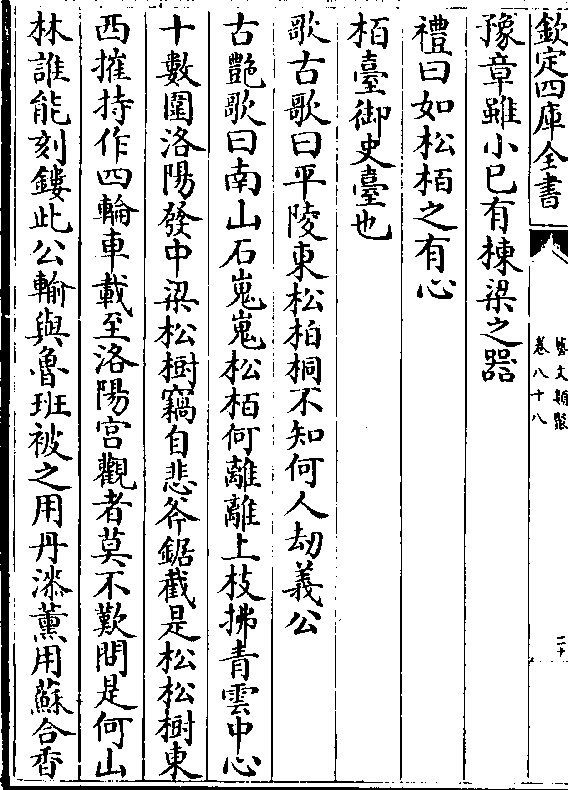 欽定四庫全書
藝文類聚
卷八十八
二十
豫章雖小已有棟梁之器
禮曰如松栢之有心
栢臺御史臺也
歌古歌曰平陵東松柏桐不知何人劫義公
古艷歌曰南山石嵬嵬松栢何離離上枝拂青雲中心
十數圍洛陽發中梁松樹竊自悲斧鋸截是松松樹東
西摧持作四輪車載至洛陽宫觀者莫不歎問是何山
林誰能刻鏤此公輸與魯班被之用丹漆薫用蘇合香